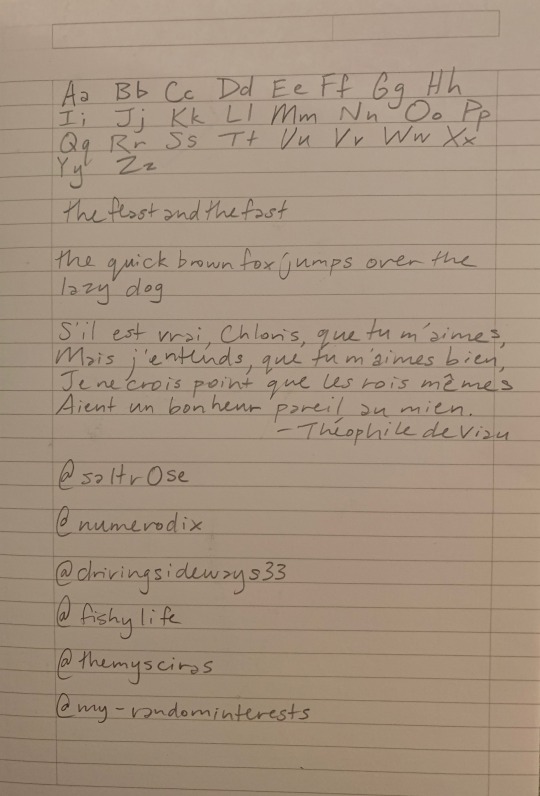 Aa Bb Cc Dd Ee Ff Gg Hh
Ii Jj Kk Ll Mm Nn Oo Pp
Qq Rr Ss Tt Uu Vv Ww Xx
Yy Zz
the feast and the fast
the quick brown fox jumps over the
lazy dog
S'il est vrai, Chloris, que tu m'aimes,
Mais j'entends, que tu m'aimes bien,
Je ne crois point que les rois mêmes
Aient un bonheur pareil au mien.
- Théophile de Viau
@saltr0se
@numerodix
@drivingsideways33
@fishylife
@themysciras
@my-randominterests